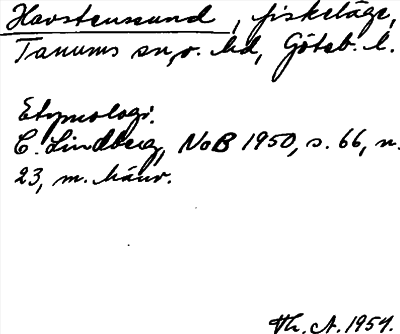 Havstenssund, fiskeläge,
Tanums sn, o. hd, Göteb. l.
Etymologi.
C. Lindberg, NoB 1950, s. 66, n.
23, m. hänv.
Th. A. 1954.